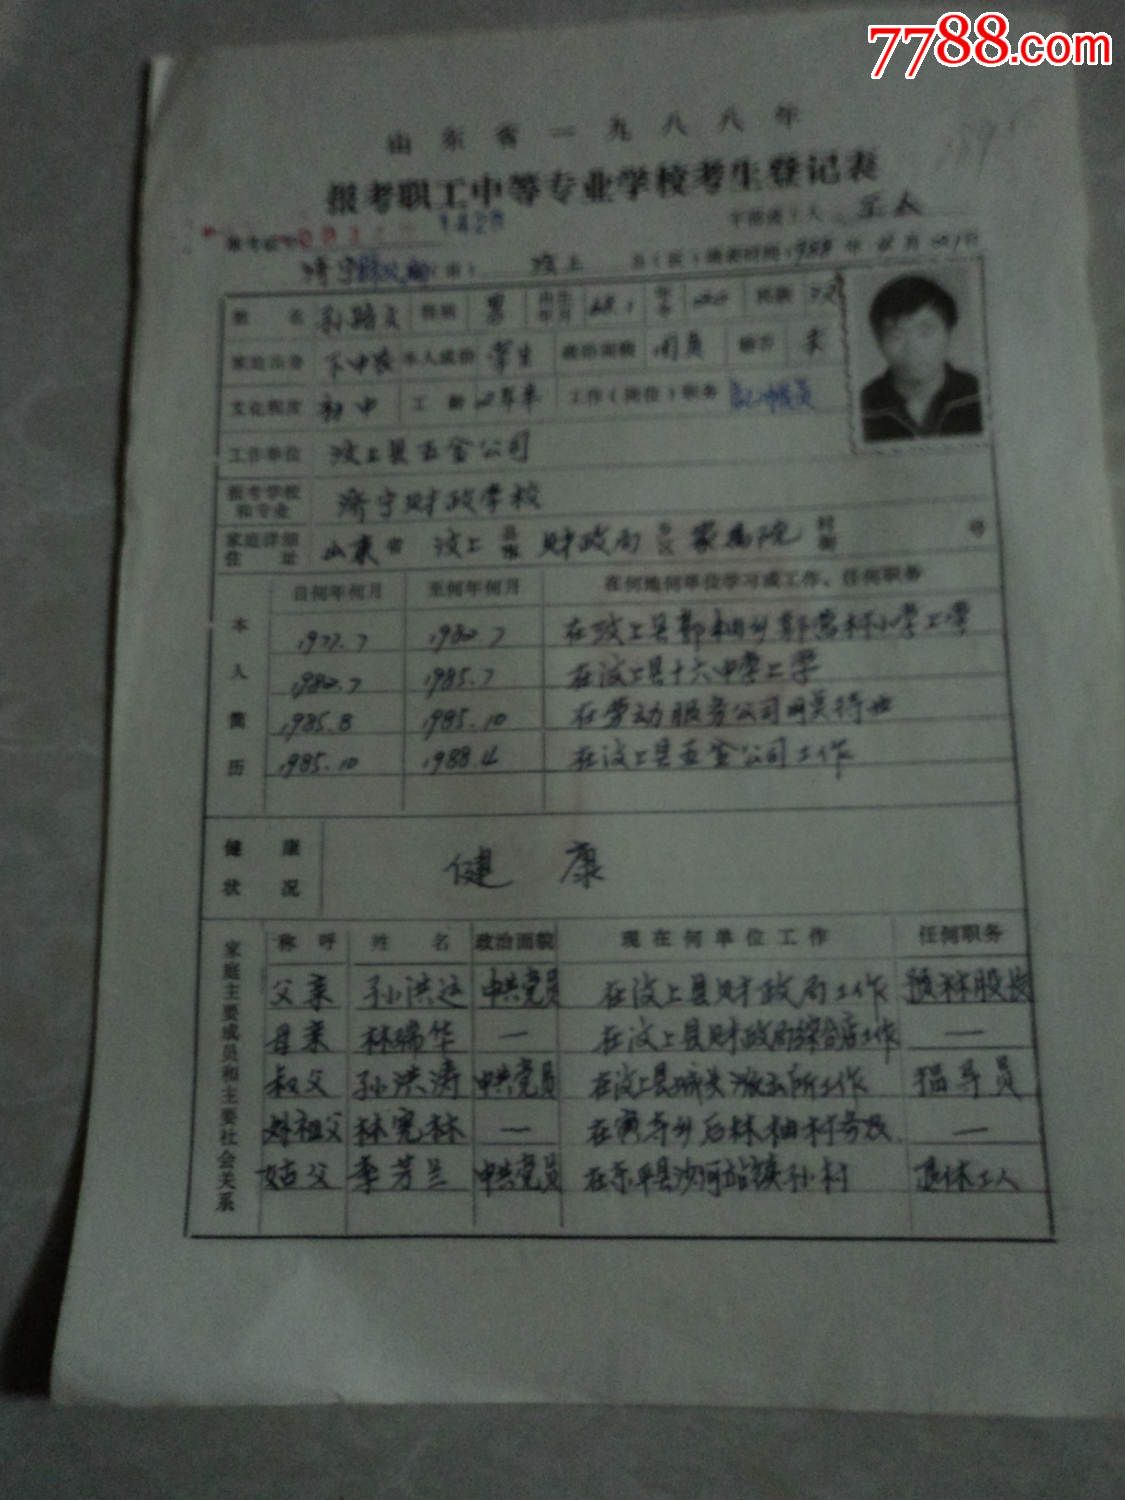 7788.com
山东省一九八八年
报考职工中等专业学校考生登记表
1428
汶上 县(区) 填表时间:1988年
姓名 孙 性别 男 民族 汉
家庭出身 下中农 本人成份 学生 政治面貌 团员 婚否 未
文化程度 初中 工龄 工作(岗位)职务
工作单位 汶上县五金公司
报考学校和专业 济宁财政学校
家庭详细住址 山东省 汶上县 财政局 家属院 号
本人简历
自何年何月 至何年何月 在何地何单位学习或工作、任何职务
1977.7 1980.7 在汶上县郭 乡郭 林小学上学
1980.7 1985.7 在汶上县十六中学上学
1985.8 1985.10 在劳动服务公司 待业
1985.10 1988.4 在汶上县五金公司工作
健康状况 健康
家庭主要成员和主要社会关系
称呼 姓名 政治面貌 现在何单位工作 任何职务
父亲 孙洪运 中共党员 在汶上县财政局工作 股长
母亲 林瑞华 — 在汶上县财政局综合店工作 —
叔父 孙洪涛 中共党员 在汶上县城关派出所工作 指导员
外祖父 林宪林 — 在寅寺乡后林 村务农 —
姑父 李芳兰 中共党员 在东平县沙河站镇孙村 退休工人